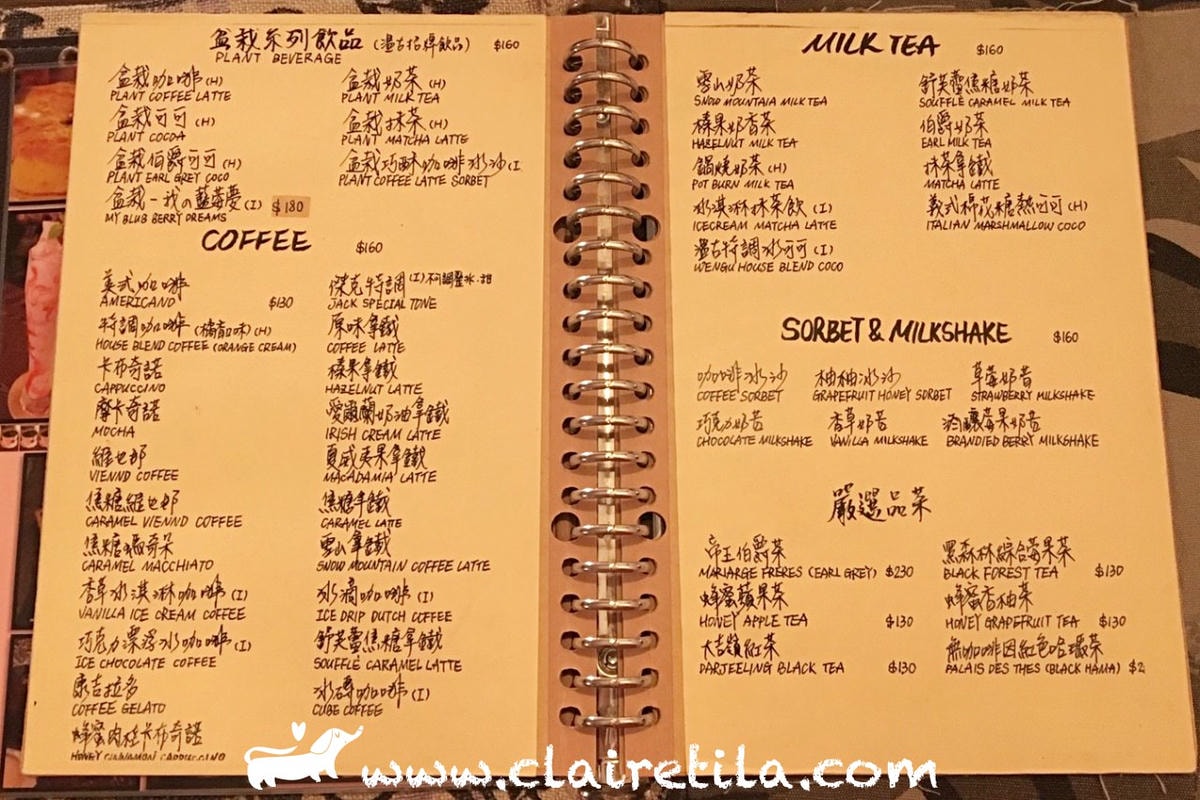 盆栽系列飲品 (溫古招牌飲品) $160
PLANT BEVERAGE
盆栽咖啡 (H)
PLANT COFFEE LATTE
盆栽奶茶 (H)
PLANT MILK TEA
盆栽可可 (H)
PLANT COCOA
盆栽抹茶 (H)
PLANT MATCHA LATTE
盆栽伯爵可可 (H)
PLANT EARL GREY COCO
盆栽巧酥咖啡冰沙 (I
PLANT COFFEE LATTE SORBET
盆栽-我の藍莓慶 (I) $180
MY BLUB BERRY DREAMS
COFFEE $160
美式咖啡
AMERICANO $130
傑克特調 (I) 不可調整冰.甜
JACK SPECIAL TONE
特調咖啡 (橘香口味) (H)
HOUSE BLEND COFFEE (ORANGE CREAM)
原味拿鐵
COFFEE LATTE
卡布奇諾
CAPPUCCINO
榛果拿鐵
HAZELNUT LATTE
摩卡奇諾
MOCHA
愛爾蘭奶油拿鐵
IRISH CREAM LATTE
維也那
VIENND COFFEE
夏威夷果拿鐵
MACADAMIA LATTE
焦糖維也那
CARAMEL VIENND COFFEE
焦糖拿鐵
CARAMEL LATTE
焦糖瑪奇朵
CARAMEL MACCHIATO
雪山拿鐵
SNOW MOUNTAIN COFFEE LATTE
香草冰淇淋咖啡 (I)
VANILLA ICE CREAM COFFEE
冰滴咖啡 (I)
ICE DRIP DUTCH COFFEE
巧克力漂浮冰咖啡 (I)
ICE CHOCOLATE COFFEE
舒芙蕾焦糖拿鐵
SOUFFLE CARAMEL LATTE
康吉拉多
COFFEE GELATO
冰磚咖啡 (I)
CUBE COFFEE
蜂蜜肉桂卡布奇諾
HONEY CINNAMON CAPPUCCINO
MILK TEA $160
雪山奶茶
SNOW MOUNTAIA MILK TEA
舒芙蕾焦糖奶茶
SOUFFLE CARAMEL MILK TEA
榛果奶香茶
HAZELNUT MILK TEA
伯爵奶茶
EARL MILK TEA
鍋燒奶茶 (H)
POT BURN MILK TEA
抹茶拿鐵
MATCHA LATTE
冰淇淋抹茶飲 (I)
ICECREAM MATCHA LATTE
義式棉花糖熱可可 (H)
ITALIAN MARSHMALLOW COCO
溫古特調冰可可 (I)
WENGU HOUSE BLEND COCO
SORBET & MILKSHAKE $160
咖啡冰沙
COFFEE SORBET
柚柚冰沙
GRAPEFRUIT HONEY SORBET
草莓奶昔
STRAWBERRY MILKSHAKE
巧克力奶昔
CHOCOLATE MILKSHAKE
香草奶昔
VANILLA MILKSHAKE
酒釀莓果奶昔
BRANDIED BERRY MILKSHAKE
嚴選品茶
帝王伯爵茶
MARIARGE FRERES (EARL GREY) $230
黑森林綜合莓果茶
BLACK FOREST TEA $130
蜂蜜蘋果茶
HONEY APPLE TEA $130
蜂蜜香柚茶
HONEY GRAPEFRUIT TEA $130
大吉嶺紅茶
DARJEELING BLACK TEA $130
無咖啡因紅色哈瑪茶
PALAIS DES THES (BLACK HAMA) $2
www.clairetila.com